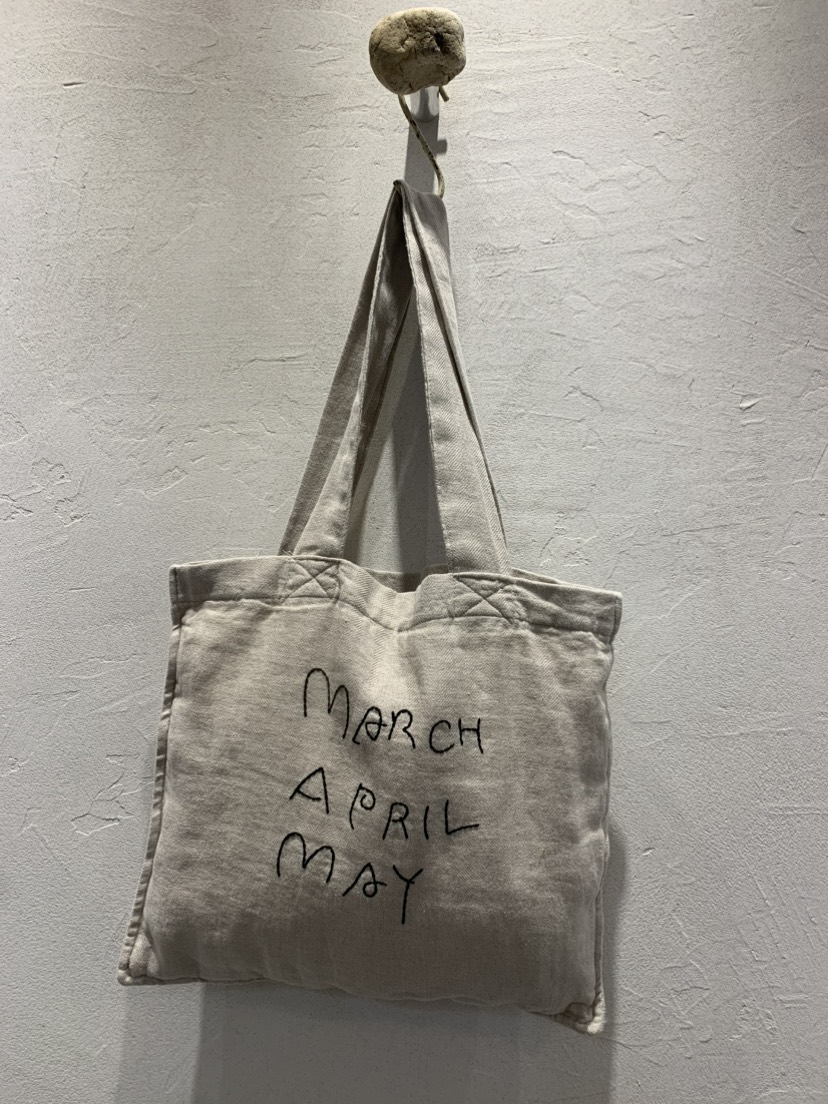 MARCH
APRIL
MAY